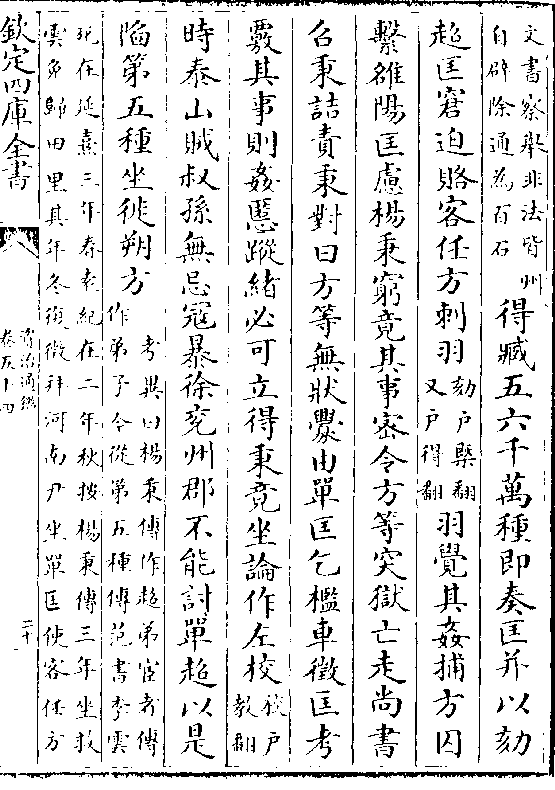 文書察舉非法皆州
自辟除通為百石
得臧五六千萬種即奏匡并以劾
超匡窘迫賂客任方刺羽
劾戶槩翻
又戶得翻
羽覺其姦捕方囚
繫雒陽匡慮楊秉窮竟其事密令方等突獄亡走尚書
召秉詰責秉對曰方等無狀釁由單匡乞檻車徵匡考
覈其事則姦慝蹤緒必可立得秉竟坐論作左校
校戶
教翻
時泰山賊叔孫無忌寇暴徐兗州郡不能討單超以是
陷第五種坐徙朔方
考異曰楊秉傳作超弟宦者傳
作弟子今從第五種傳范書李雲
死在延熹三年春袁紀在二年秋按楊秉傳三年坐救
雲免歸田里其年冬復徵拜河南尹坐單匡使客任方
欽定四庫全書
資治通鑑
卷五十四
二十